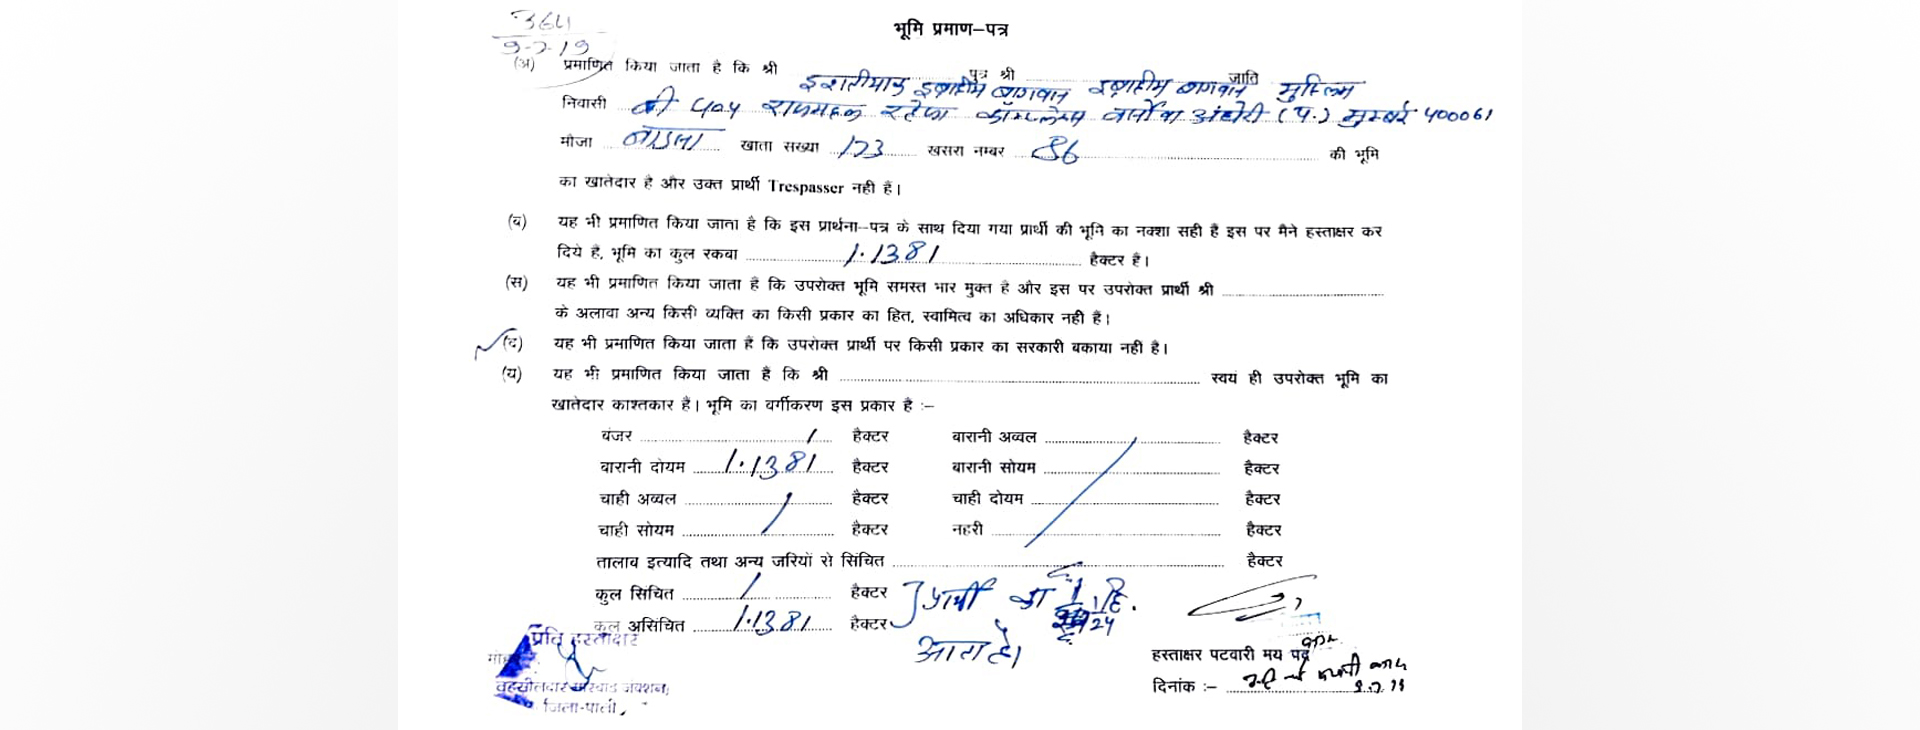 364
9-7-19
भूमि प्रमाण–पत्र
(अ) प्रमाणित किया जाता है कि श्री इशतीयाक इब्राहीम बागवान पुत्र श्री इब्राहीम बागवान जाति मुस्लिम
निवासी बी 404 राजमहल स्टेफा कॉम्पलेक्स वर्सोवा अंधेरी (प.) मुम्बई 400061
मौजा खाता सख्या 173 खसरा नम्बर 86 की भूमि
का खातेदार है और उक्त प्रार्थी Trespasser नही हैं।
(ब) यह भी प्रमाणित किया जाता है कि इस प्रार्थना–पत्र के साथ दिया गया प्रार्थी की भूमि का नक्शा सही हैं इस पर मैने हस्ताक्षर कर
दिये है, भूमि का कुल रकबा 1.1381 हैक्टर है।
(स) यह भी प्रमाणित किया जाता है कि उपरोक्त भूमि समस्त भार मुक्त है और इस पर उपरोक्त प्रार्थी श्री
के अलावा अन्य किसी व्यक्ति का किसी प्रकार का हित, स्वामित्व का अधिकार नही है।
(द) यह भी प्रमाणित किया जाता है कि उपरोक्त प्रार्थी पर किसी प्रकार का सरकारी बकाया नही है।
(य) यह भी प्रमाणित किया जाता है कि श्री स्वयं ही उपरोक्त भूमि का
खातेदार काश्तकार है। भूमि का वर्गीकरण इस प्रकार है :–
बंजर / हैक्टर बारानी अव्वल हैक्टर
बारानी दोयम 1.1381 हैक्टर बारानी सोयम हैक्टर
चाही अव्वल हैक्टर चाही दोयम हैक्टर
चाही सोयम हैक्टर नहरी हैक्टर
तालाब इत्यादि तथा अन्य जरियों से सिंचित हैक्टर
कुल सिंचित / हैक्टर प्रार्थी का 1/24 हि.
कुल असिंचित 1.1381 हैक्टर आता है।
प्रति हस्ताक्षर
हस्ताक्षर पटवारी मय पद
तहसीलदार मारवाड जंक्शन,
दिनांक :– 9.7.19
जिला-पाली